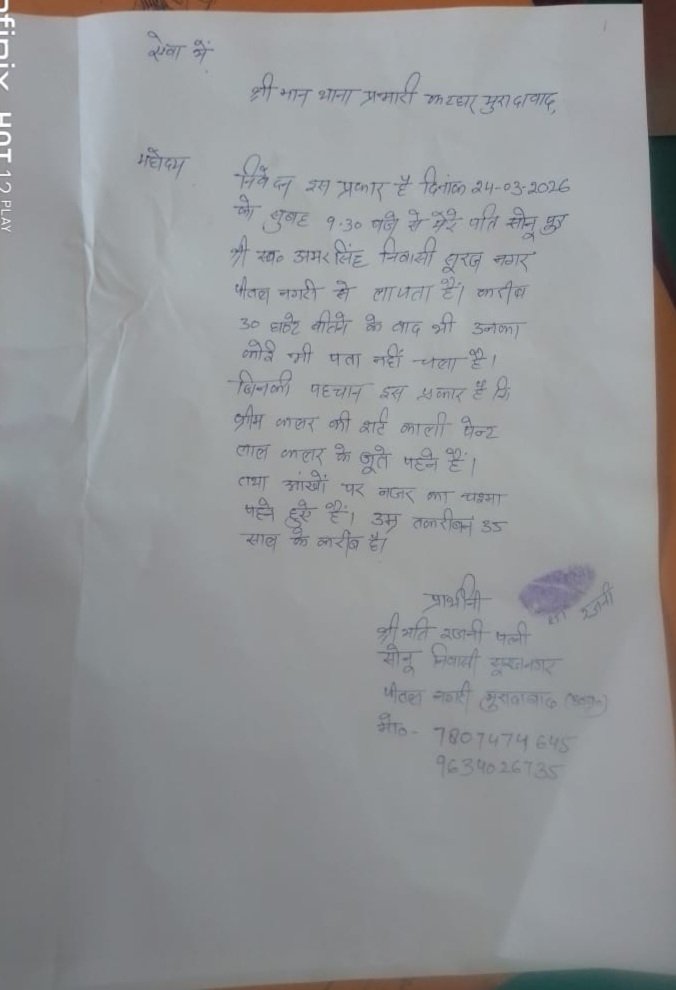 सेवा में
श्री मान थाना प्रभारी कटघर मुरादाबाद,
महोदय
निवेदन इस प्रकार है दिनांक 24-03-2026
को सुबह 9.30 बजे से मेरे पति सोनू पुत्र
श्री स्व० अमर सिंह निवासी सूरज नगर
पीतल नगरी से लापता हैं। करीब
30 घण्टे बीतने के बाद भी उनका
कोई भी पता नहीं चला है।
जिनकी पहचान इस प्रकार है कि
क्रीम कलर की शर्ट काली पेन्ट
लाल कलर के जूते पहने हैं।
तथा आंखों पर नजर का चश्मा
पहने हुऐ हैं। उम्र तकरीबन 35
साल के करीब है।
प्रार्थीनी
रजनी
श्री मति रजनी पत्नी
सोनू निवासी सूरजनगर
पीतल नगरी मुरादाबाद (उ०प्र०)
मो०- 7807474645
9634026735
HOT 12 PLAY